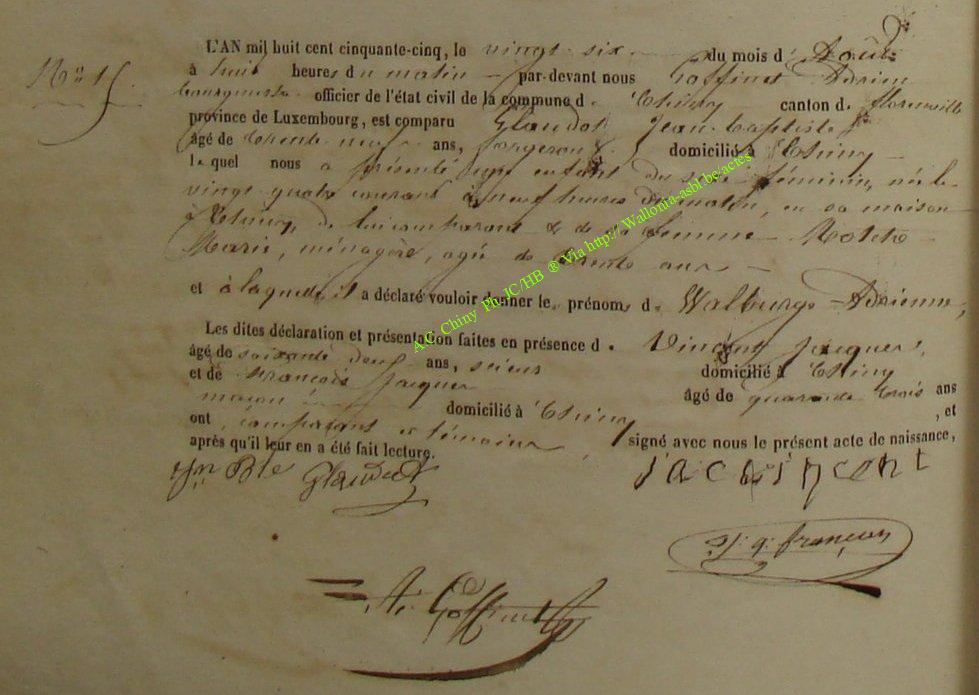 N° 15
L'AN mil huit cent cinquante-cinq, le vingt-six du mois d'Août
à huit heures du matin par-devant nous Goffinet Adrien
bourgmestre officier de l'état civil de la commune d. Chiny canton d. Florenville
province de Luxembourg, est comparu Glaudot Jean-Baptiste
âgé de trente neuf ans, forgeron domicilié à Chiny
lequel nous a présenté un enfant du sexe féminin, née le
vingt-quatre courant à neuf heures du matin, en sa maison
à Chiny, de lui comparant & de sa femme
Marie, ménagère, agée de trente ans
et à laquelle il a déclaré vouloir donner les prénoms d. Walburge-Adrienne,
Les dites déclaration et présentation faites en présence d. Vincent Jacques,
âgé de soixante deux ans, scieur domicilié à Chiny
et de François Jacques âgé de quarante trois ans
maçon domicilié à Chiny, et
ont, comparant et témoins signé avec nous le présent acte de naissance,
après qu'il leur en a été fait lecture.
Jn Bte Glaudot
Jac Vincent
J. q. françois
A. Goffinet
A.C. Chiny Ph.JC/HB ® Via http://Wallonia-asbl.be/actes